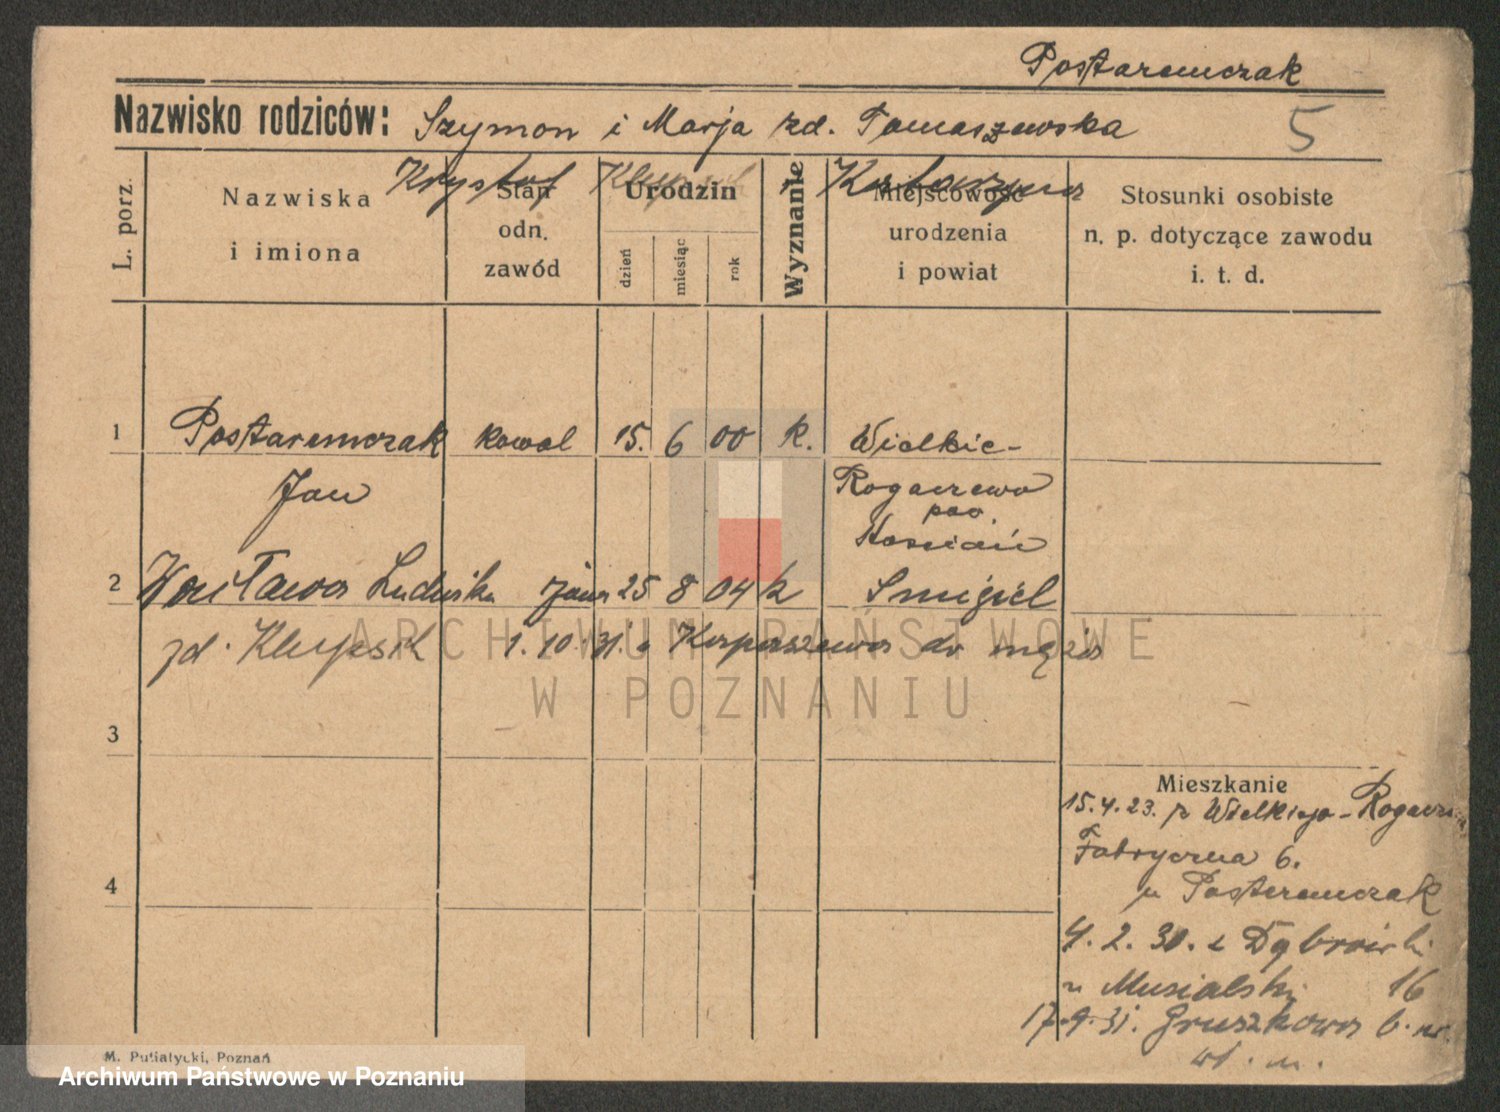 Postaremczak
Nazwisko rodziców: Szymon i Marja zd. Tomaszewska
5
Krysztof Klupsch i Katarzyna
L. porz.
Nazwiska
i imiona
Stan
odn.
zawód
Urodzin
dzień
miesiąc
rok
Wyznanie
Miejscowość
urodzenia
i powiat
Stosunki osobiste
n. p. dotyczące zawodu
i. t. d.
1 Postaremczak kowal 15. 6 00 k. Wielkie-
Jan Rogaczewo
pow.
Kościan
2 Ludwika żona 25 8 04 k Śmigiel
zd. Klupsch 1. 10. 31. z Karpaszewa do męża
3
4
Mieszkanie
15.4.23. z Wielkiego-Rogaczewa
Fabryczna 6.
u Postaremczak
4. 2. 30. z Dąbrowki
u Musialski 16
17.9.31. Gruszkowa 6. nr.
M. Putiatycki, Poznań
ARCHIWUM PAŃSTWOWE
W POZNANIU
Archiwum Państwowe w Poznaniu